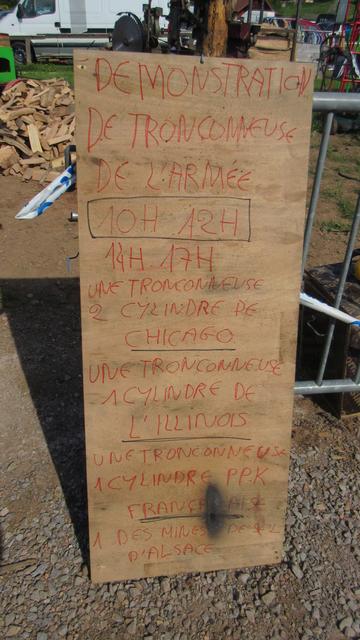 DEMONSTRATION
DE TRONCONNEUSE
DE L'ARMÉE
10H 12H
14H 17H
UNE TRONCONNEUSE
2 CYLINDRE DE
CHICAGO
UNE TRONCONNEUSE
1 CYLINDRE DE
L'ILLINOIS
UNE TRONCONNEUSE
1 CYLINDRE PPK
1 DES MINES DE
D'ALSACE